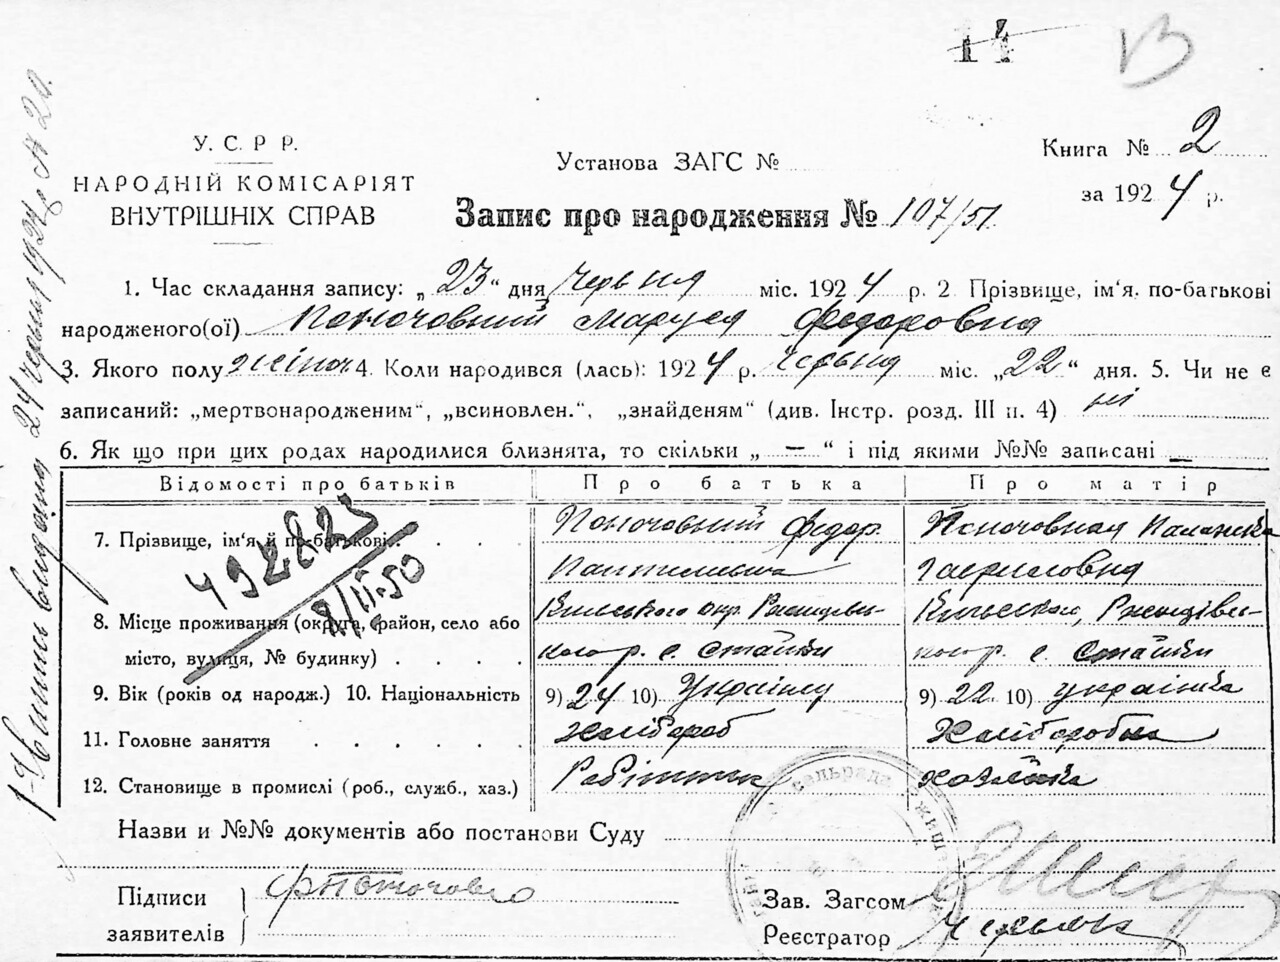 14
13
У. С. Р. Р.
НАРОДНІЙ КОМІСАРІЯТ
ВНУТРІШНІХ СПРАВ
Установа ЗАГС №
Книга № 2
за 1924 р.
Запис про народження № 107/51.
1. Час складання запису: „23“ дня червня міс. 1924 р. 2 Прізвище, ім'я, по-батькові
народженого(ої) Маруся Федоровна
3. Якого полу жіноч 4. Коли народився (лась): 1924 р. червня міс. „22“ дня. 5. Чи не є
записаний: „мертвонародженим“, „всиновлен.“, „знайденям“ (див. Інстр. розд. III п. 4) ні
6. Як що при цих родах народилися близнята, то скільки „ — “ і під якими №№ записані —
Відомості про батьків Про батька Про матір
7. Прізвище, ім'я й по-батькові Федор
Гавриловна
8. Місце проживання (округа, район, село або
місто, вулиця, № будинку) р. с. Стайки р. с. Стайки
9. Вік (років од народж.) 10. Національність 9) 24 10) 9) 22 10) українка
11. Головне заняття Хлібороб Хліборобка
12. Становище в промислі (роб., служб., хаз.) хазяйка
492823
Назви и №№ документів або постанови Суду
Підписи
заявителів
Зав. Загсом
Реєстратор
сельрада
24 червня 1924 р. № 20.